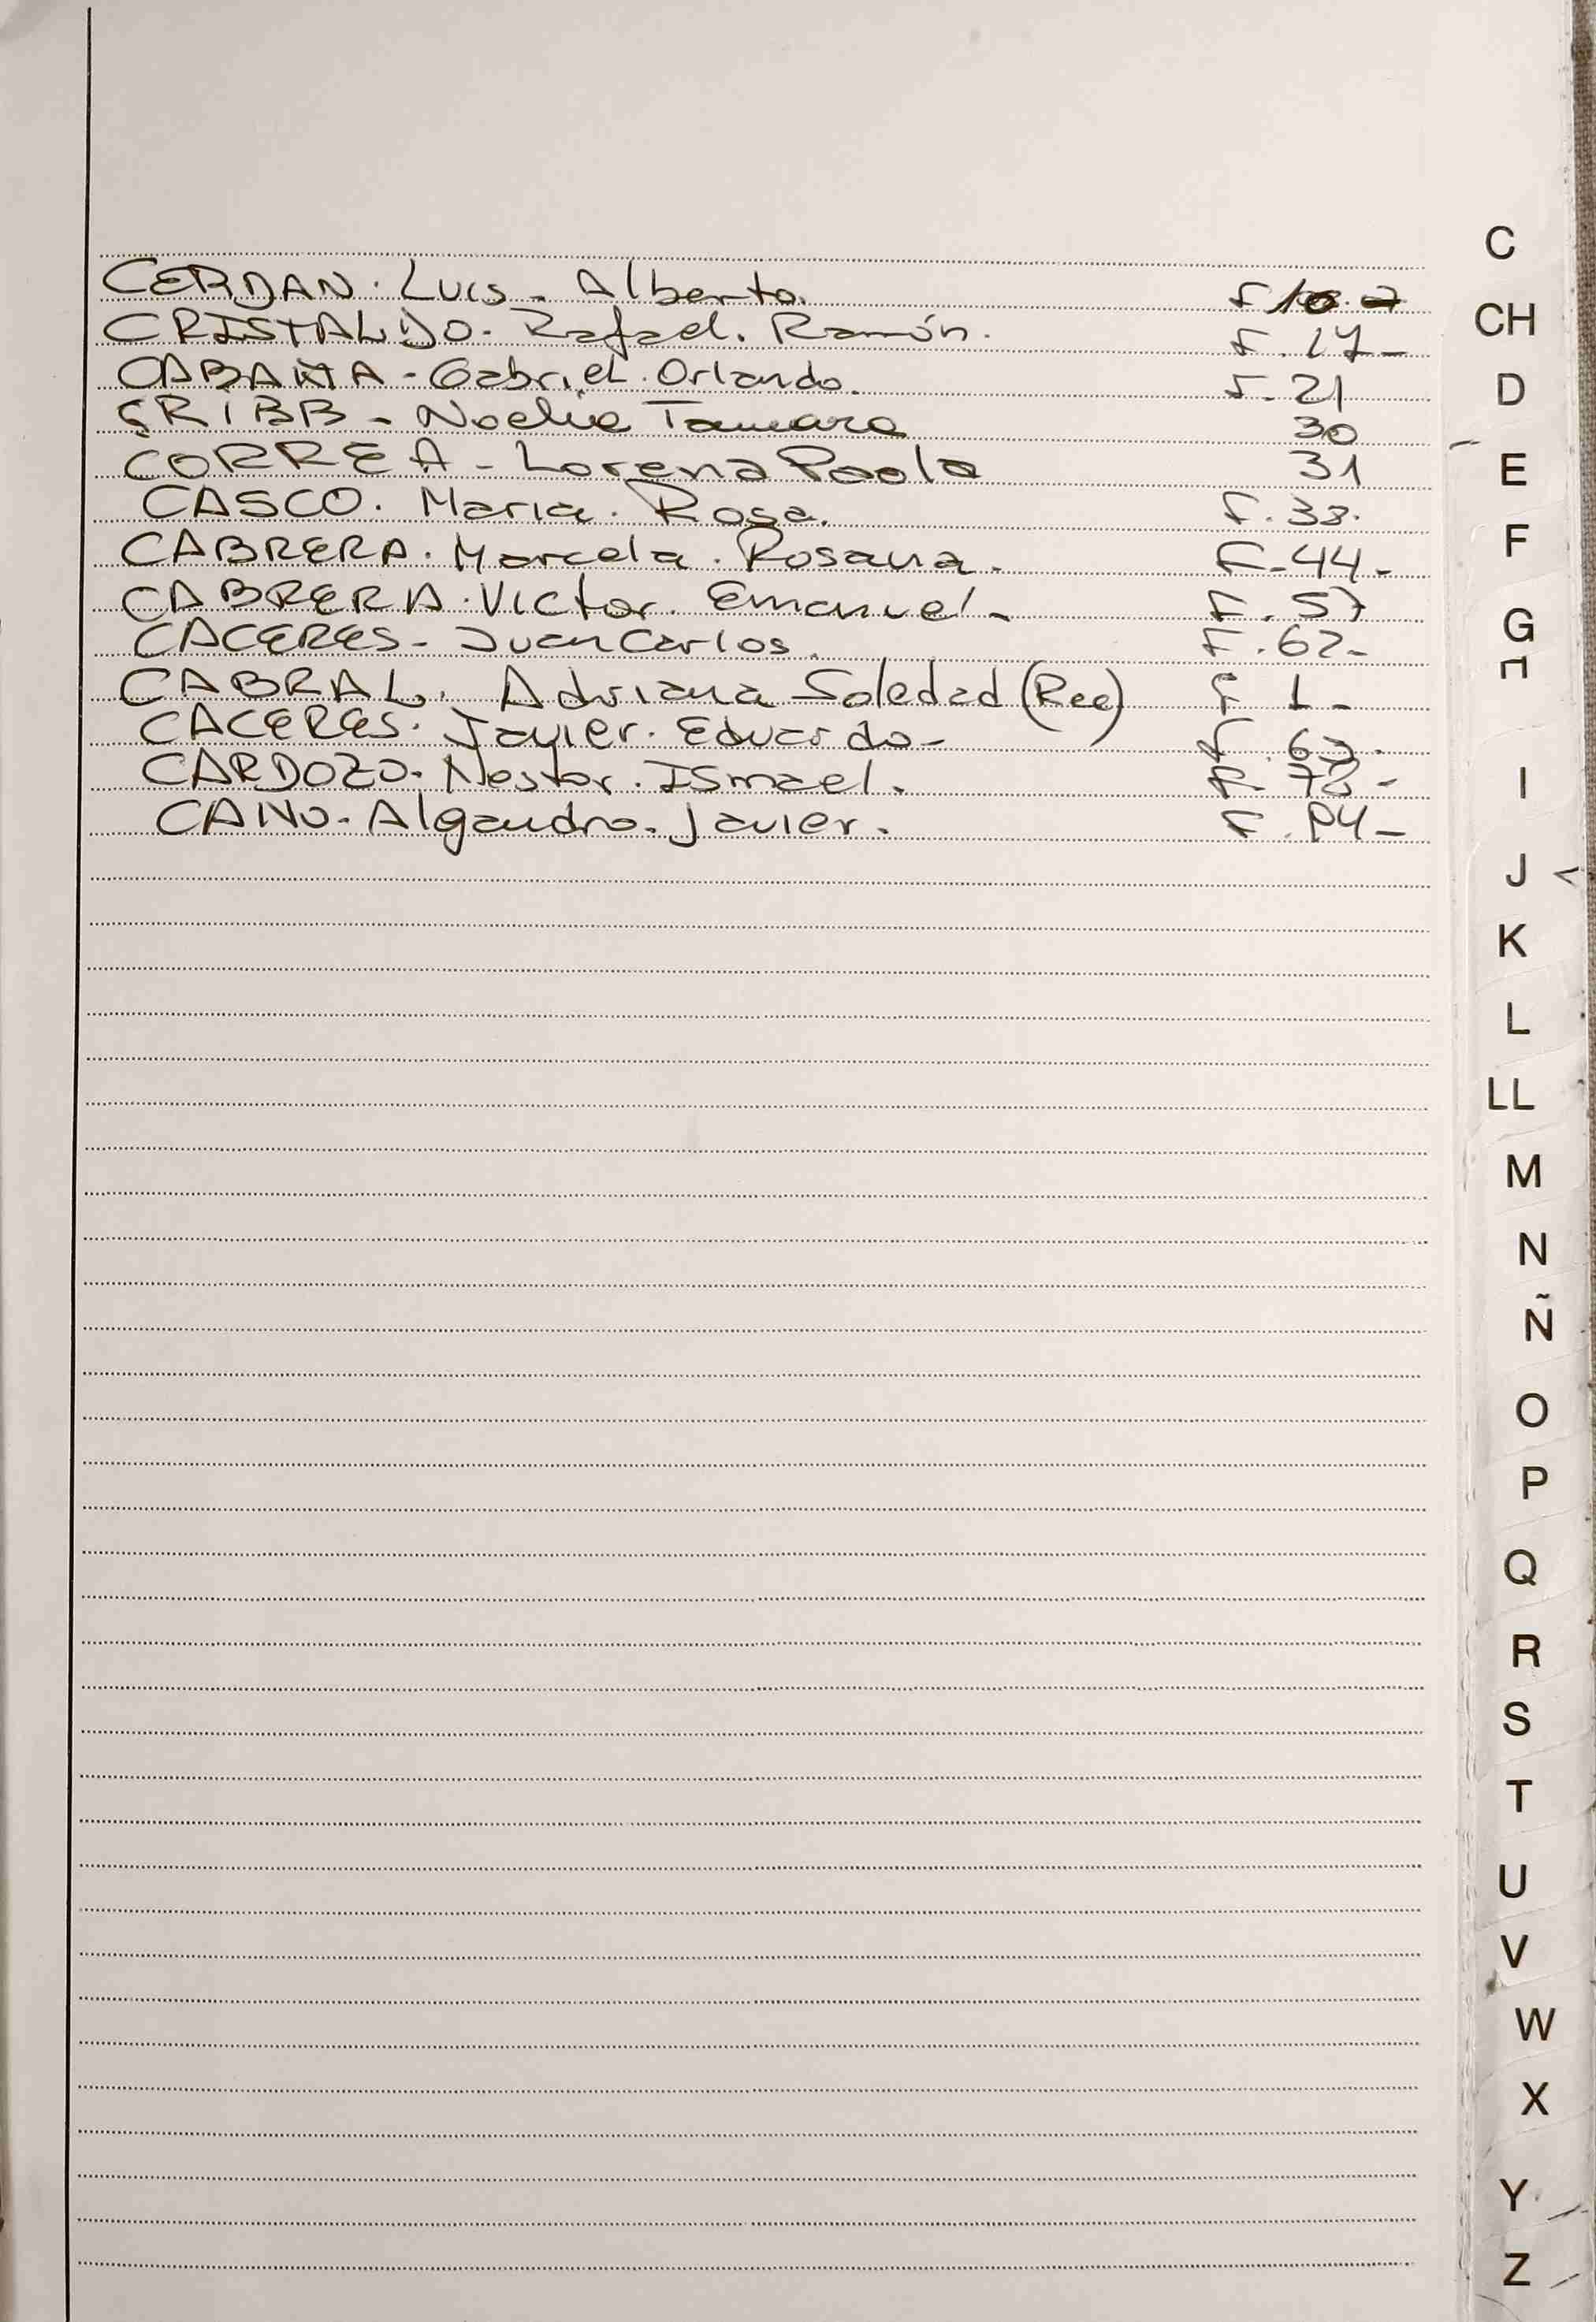 CERDAN. Luis - Alberto. F 10.
CRISTALDO. Rafael. Ramón. F. 17-
CABAÑA - Gabriel. Orlando. F. 21
CRIBB - Noelia Tamara 30
CORREA - Lorena Paola 31
CASCO. Maria. Rosa. F. 33.
CABRERA. Marcela. Rosana. F-44-
CABRERA. Victor. Emanuel- F. 57
CACERES- Juan Carlos. F. 62-
CABRAL. Adriana Soledad (Ree) F 1-
CACERES. Javier. Eduardo- F.
CARDOZO. Nestor. ISmael. F. 78-
CANO. Algandro. Javier. F. 84-
C
CH
D
E
F
G
I
J
K
L
LL
M
N
Ñ
O
P
Q
R
S
T
U
V
W
X
Y
Z